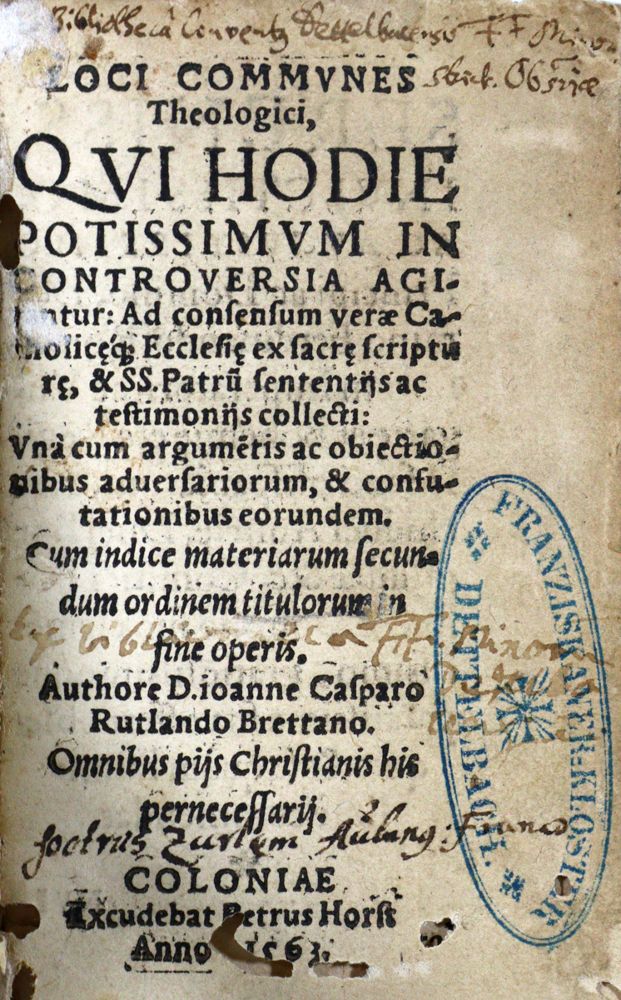 Bibliotheca Conventq Dettelbacensis FF Minor.
strict. Obs:iæ
LOCI COMMVNES
Theologici,
QVI HODIE
POTISSIMVM IN
CONTROVERSIA AGI-
tantur: Ad consensum veræ Ca-
tholicęq; Ecclesię ex sacrę scriptu
rę, & SS. Patrũ sententijs ac
testimonijs collecti:
Vnà cum argumẽtis ac obiectio-
nibus aduersariorum, & confu-
tationibus eorundem.
Cum indice materiarum secun-
dum ordinem titulorum in
fine operis.
Ex bibliotheca FF. Minor
Authore D. ioanne Casparo
Rutlando Brettano.
Omnibus pijs Christianis his
pernecessarij.
COLONIAE
Excudebat Petrus Horst
Anno 1563.
FRANZISKANER-KLOSTER
DETTELBACH